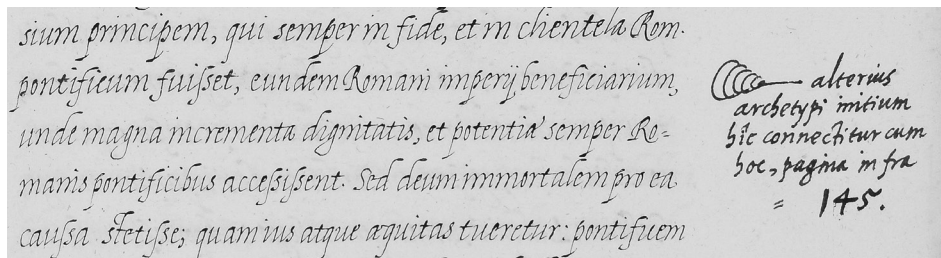 sium principem, qui semper in fide, et in clientela Rom.
pontificum fuisset, eundem Romani imperij beneficiarium,
unde magna incrementa dignitatis, et potentiæ semper Ro=
manis pontificibus accessissent. Sed deum immortalem pro ea
caussa stetisse; quam ius atque æquitas tueretur: pontificem
alterius
archetypi initium
hîc connectitur cum
hoc, pagina infra
= 145.